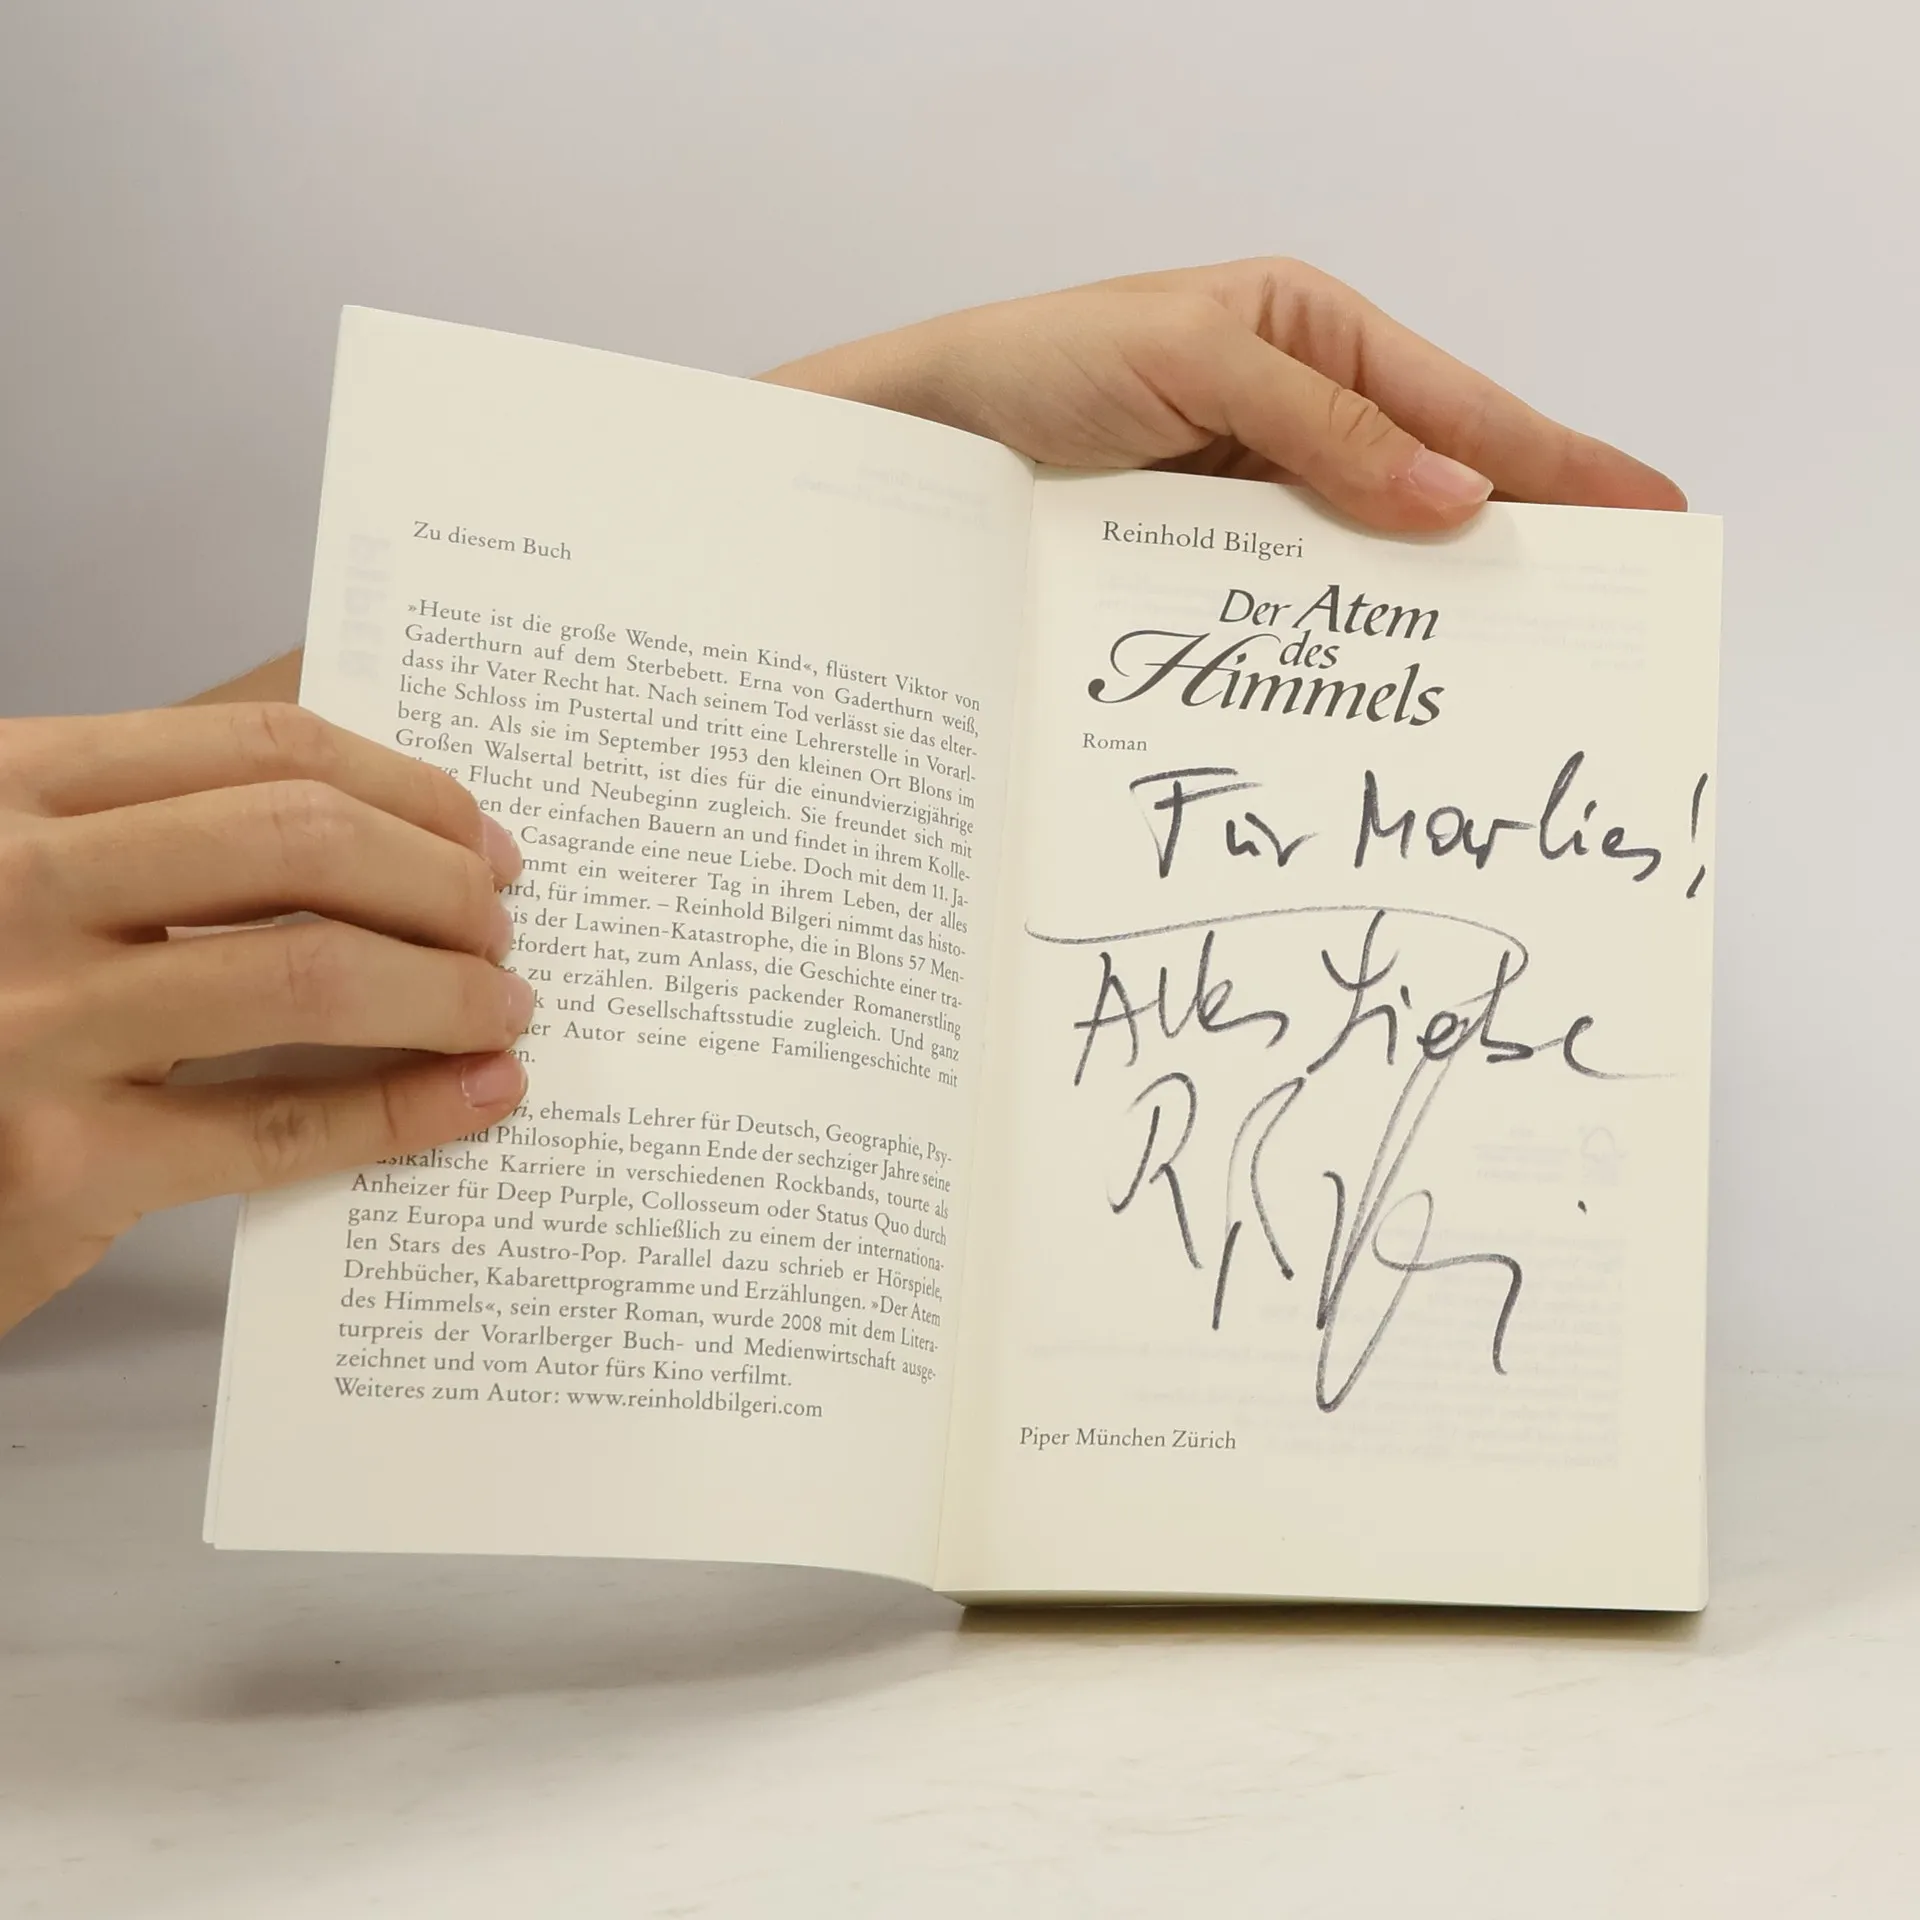 Zu diesem Buch
»Heute ist die große Wende, mein Kind«, flüstert Viktor von
Gaderthurn auf dem Sterbebett. Erna von Gaderthurn weiß,
dass ihr Vater Recht hat. Nach seinem Tod verlässt sie das elter-
liche Schloss im Pustertal und tritt eine Lehrerstelle in Vorarl-
berg an. Als sie im September 1953 den kleinen Ort Blons im
Großen Walsertal betritt, ist dies für die einundvierzigjährige
Flucht und Neubeginn zugleich. Sie freundet sich mit
der einfachen Bauern an und findet in ihrem Kolle-
Casagrande eine neue Liebe. Doch mit dem 11. Ja-
ein weiterer Tag in ihrem Leben, der alles
für immer. – Reinhold Bilgeri nimmt das histo-
der Lawinen-Katastrophe, die in Blons 57 Men-
hat, zum Anlass, die Geschichte einer tra-
zu erzählen. Bilgeris packender Romanerstling
und Gesellschaftsstudie zugleich. Und ganz
Autor seine eigene Familiengeschichte mit
ehemals Lehrer für Deutsch, Geographie, Psy-
Philosophie, begann Ende der sechziger Jahre seine
musikalische Karriere in verschiedenen Rockbands, tourte als
Anheizer für Deep Purple, Collosseum oder Status Quo durch
ganz Europa und wurde schließlich zu einem der internationa-
len Stars des Austro-Pop. Parallel dazu schrieb er Hörspiele,
Drehbücher, Kabarettprogramme und Erzählungen. »Der Atem
des Himmels«, sein erster Roman, wurde 2008 mit dem Litera-
turpreis der Vorarlberger Buch- und Medienwirtschaft ausge-
zeichnet und vom Autor fürs Kino verfilmt.
Weiteres zum Autor: www.reinholdbilgeri.com
Reinhold Bilgeri
Der Atem
des
Himmels
Roman
Für Marlies!
Alles Liebe
Piper München Zürich